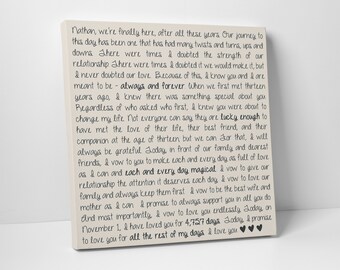 Nathan, we're finally here, after all these years. Our journey to
this day has been one that has had many twists and turns, ups and
downs. There were times I doubted the strength of our
relationship. There were times I doubted it we would make it, but
I never doubted our love. Because of this, I know you and I are
meant to be - always and forever. When we first met thirteen
years ago, I knew there was something special about you.
Regardless of who asked who first, I knew you were about to
change my life. Not everyone can say they are lucky enough to
have met the love of their life, their best friend, and their
companion at the age of thirteen; but we can. For that, I will
always be grateful. Today, in front of our family and dearest
friends, I vow to you to make each and every day as full of love
as I can and each and every day magical. I vow to give our
relationship the attention it deserves each day. I vow to love our
family and always keep them first. I vow to be the best wife and
mother as I can. I promise to always support you in all you do.
And most importantly, I vow to love you endlessly. Today, on
November 1, I have loved you for 4,757 days. Today, I promise
to love you for all the rest of my days. I love you ♥ ♥ ♥